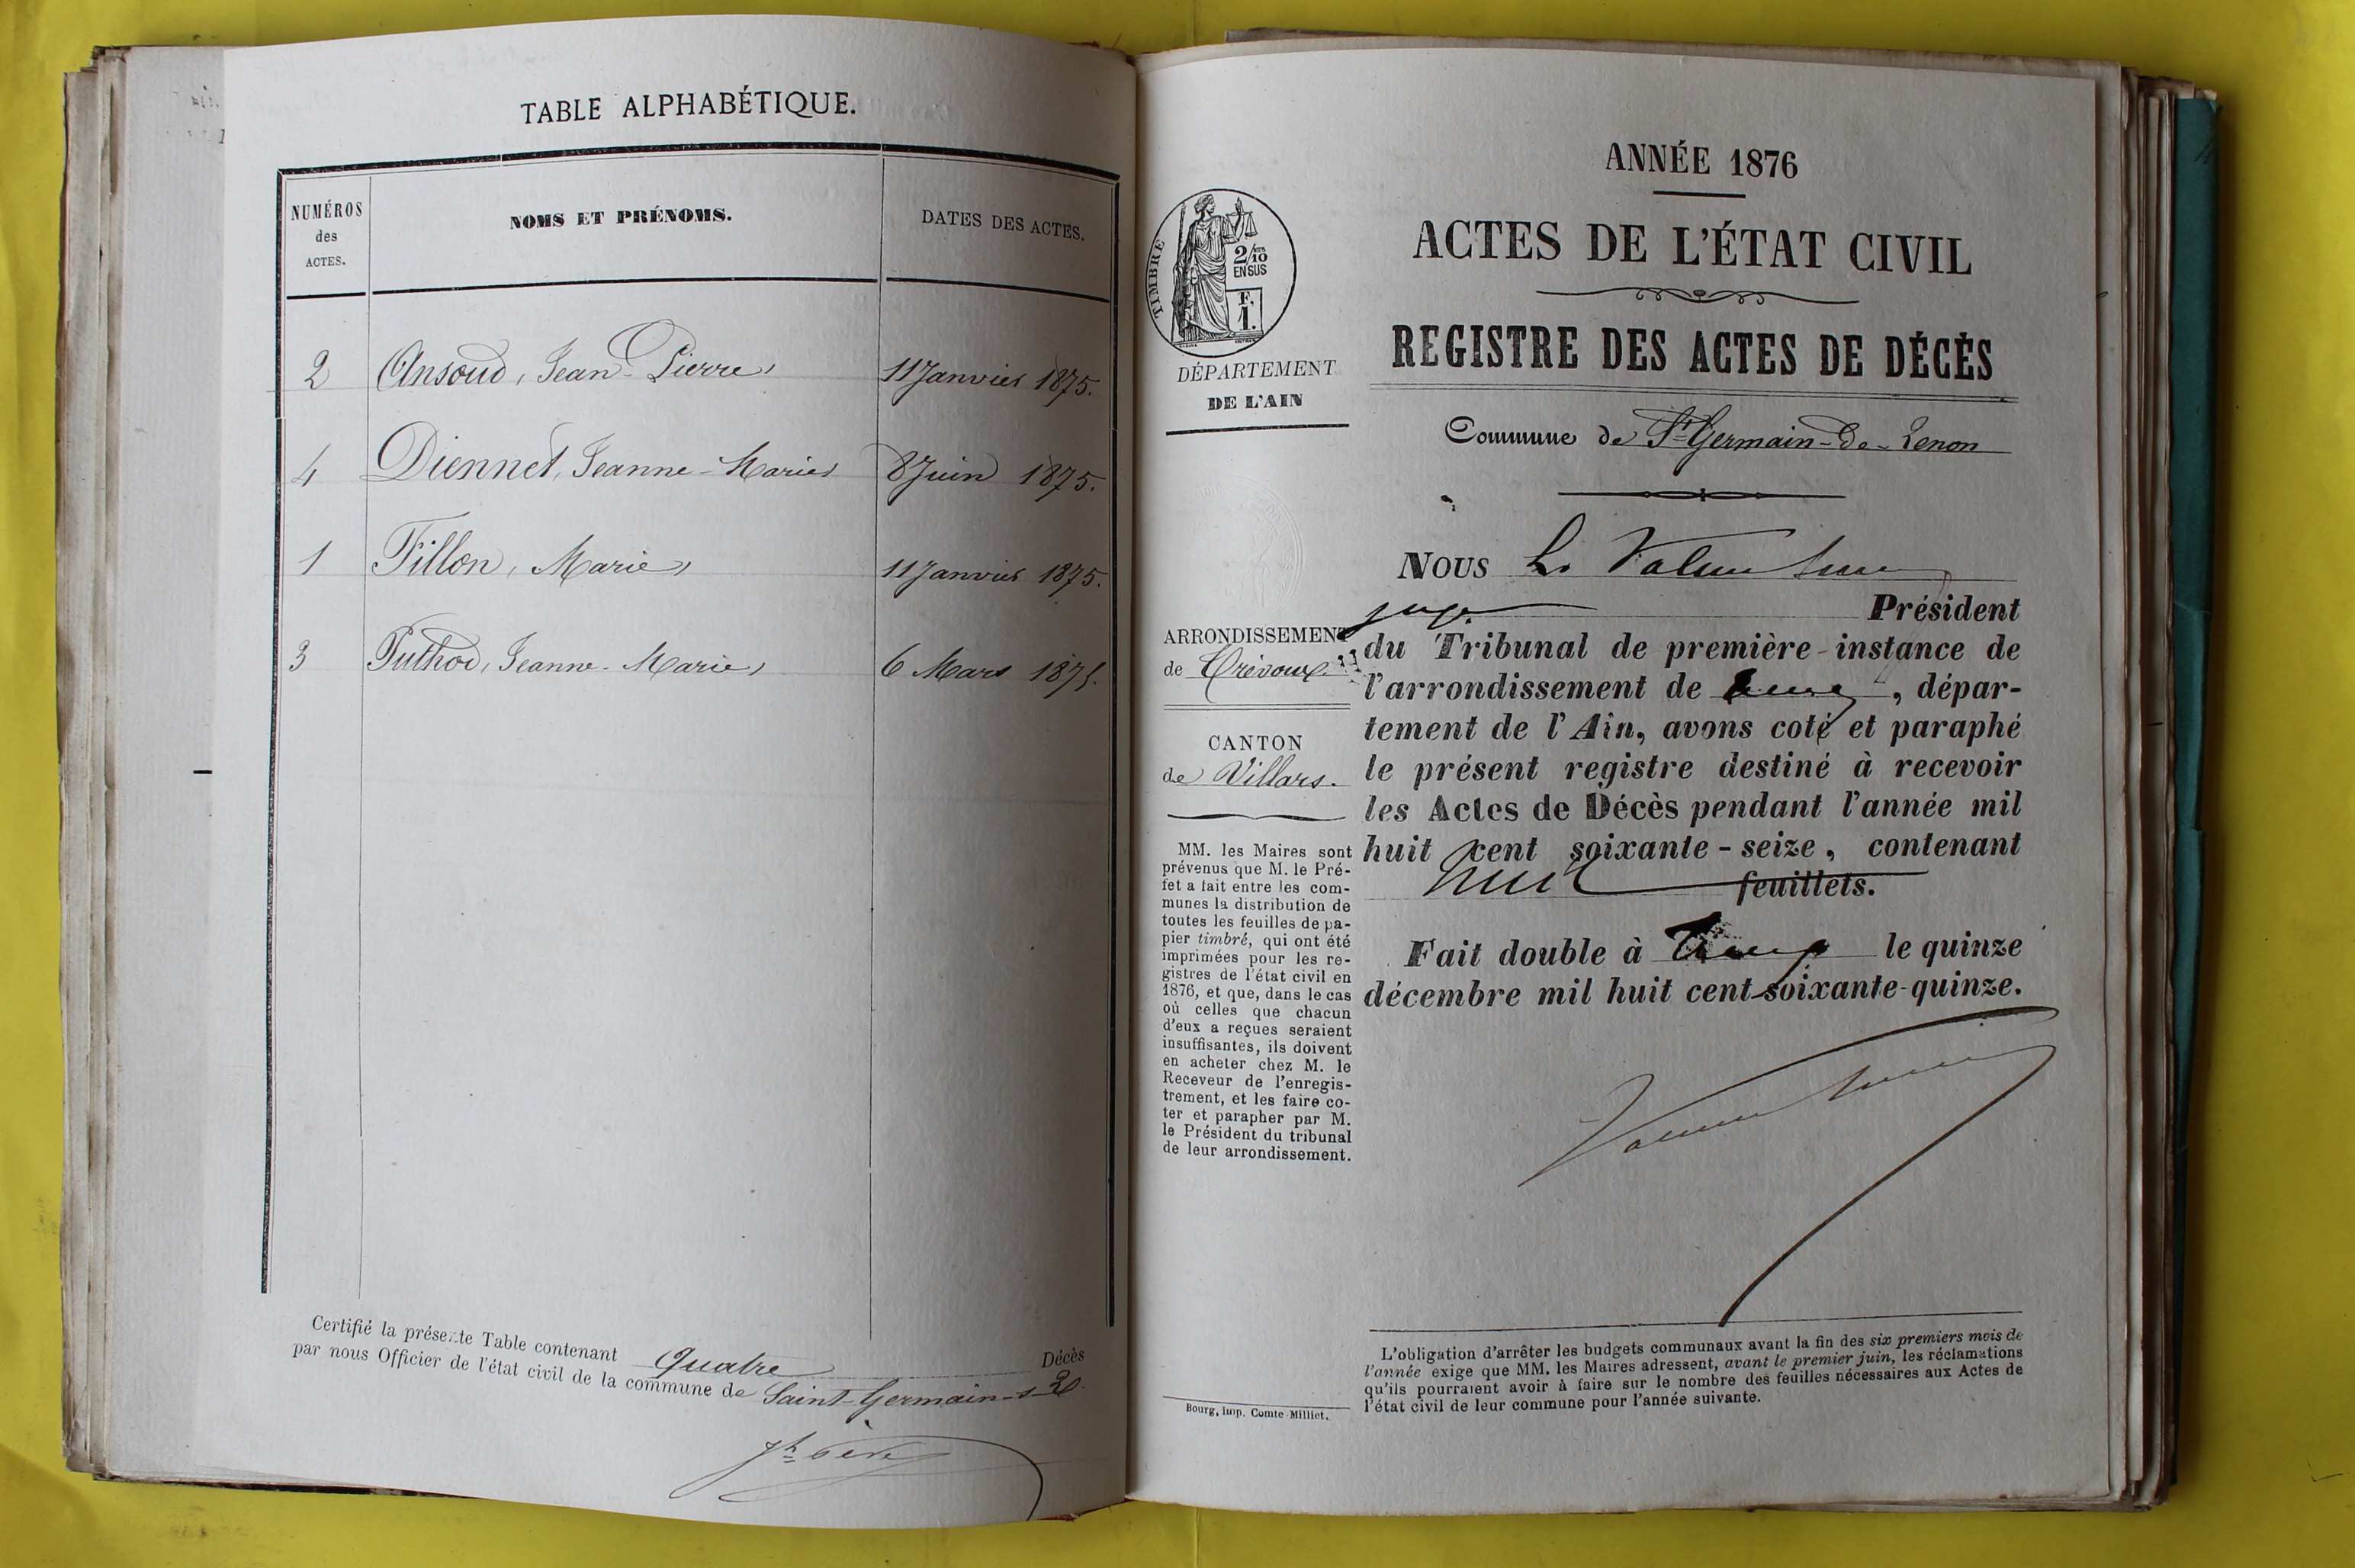 TABLE ALPHABÉTIQUE.
NUMÉROS
des
ACTES.
NOMS ET PRÉNOMS.
DATES DES ACTES.
2 Ansoud, Jean-Pierre, 11 Janvier 1875.
4 Diennet, Jeanne-Marie, 8 Juin 1875.
1 Fillon, Marie, 11 Janvier 1875.
3 Puthod, Jeanne-Marie, 6 Mars 1875.
Certifié la présente Table contenant Quatre Décès
par nous Officier de l'état civil de la commune de Saint-Germain-s-R.
ANNÉE 1876
ACTES DE L'ÉTAT CIVIL
REGISTRE DES ACTES DE DÉCÈS
Commune de St-Germain-de-Renon
TIMBRE
2/10
EN SUS
F.
1.
DÉPARTEMENT
DE L'AIN
ARRONDISSEMENT
de Trévoux.
CANTON
de Villars.
MM. les Maires sont
prévenus que M. le Pré-
fet a fait entre les com-
munes la distribution de
toutes les feuilles de pa-
pier timbré, qui ont été
imprimées pour les re-
gistres de l'état civil en
1876, et que, dans le cas
où celles que chacun
d'eux a reçues seraient
insuffisantes, ils doivent
en acheter chez M. le
Receveur de l'enregis-
trement, et les faire co-
ter et parapher par M.
le Président du tribunal
de leur arrondissement.
Bourg, imp. Comte-Milliet.
NOUS
juge Président
du Tribunal de première instance de
l'arrondissement de , dépar-
tement de l'Ain, avons coté et paraphé
le présent registre destiné à recevoir
les Actes de Décès pendant l'année mil
huit cent soixante-seize, contenant
huit feuillets.
Fait double à le quinze
décembre mil huit cent soixante-quinze.
L'obligation d'arrêter les budgets communaux avant la fin des six premiers mois de
l'année exige que MM. les Maires adressent, avant le premier juin, les réclamations
qu'ils pourraient avoir à faire sur le nombre des feuilles nécessaires aux Actes de
l'état civil de leur commune pour l'année suivante.